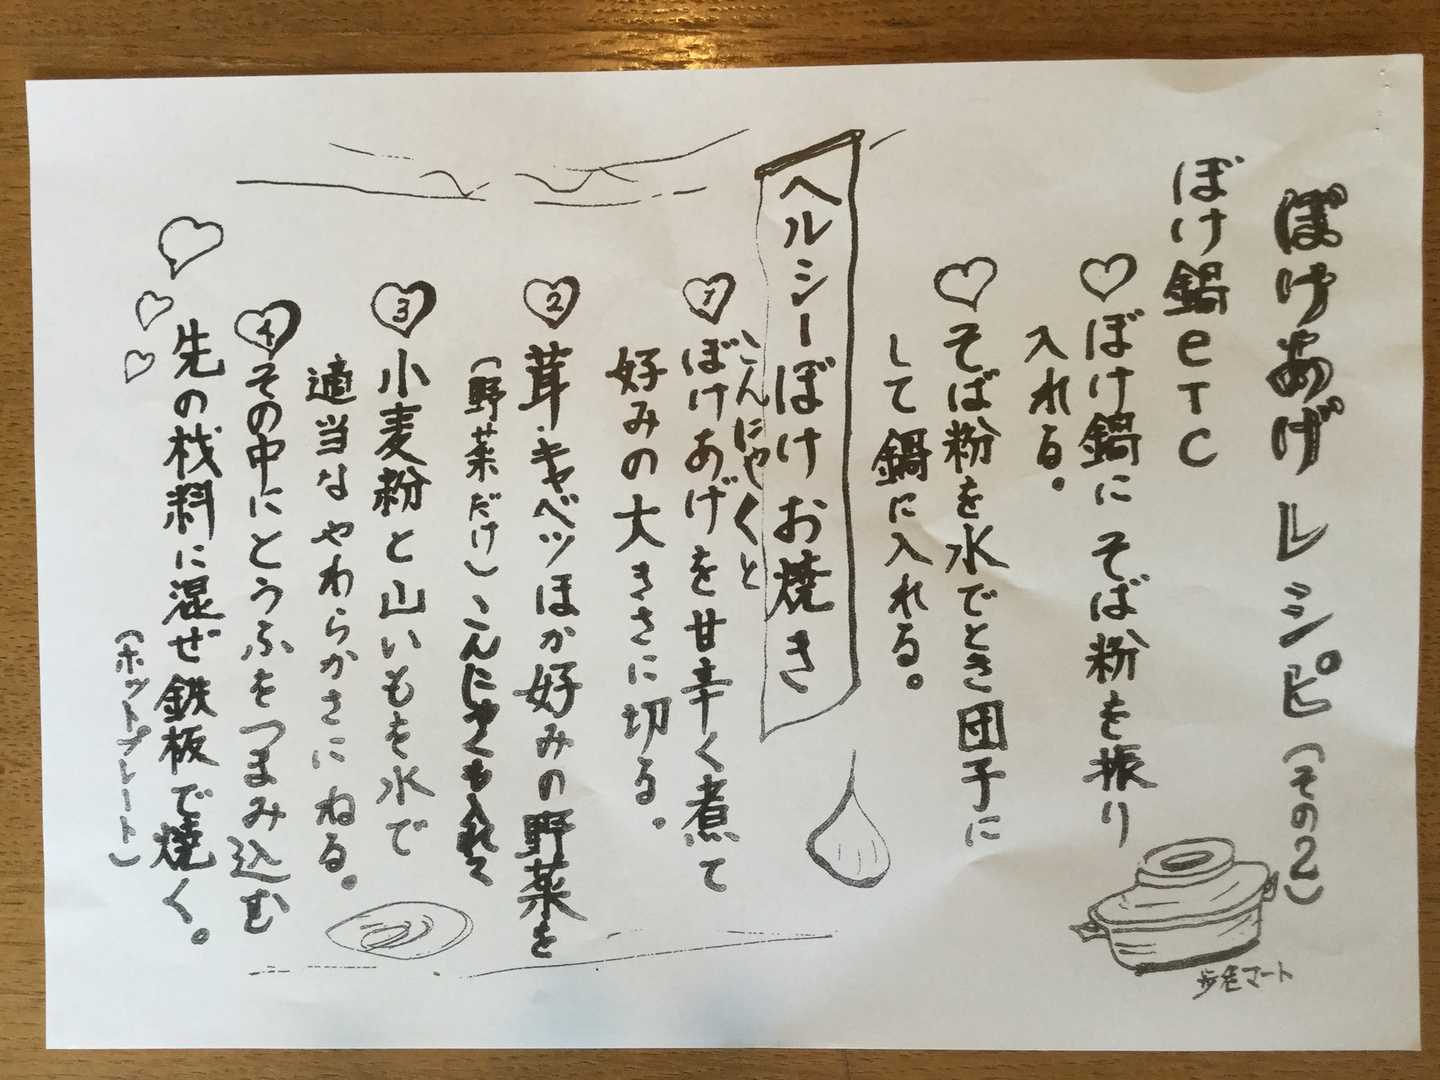 ぼけあげレシピ（その2）
ぼけ鍋eTC
ぼけ鍋にそば粉を振り
入れる。
そば粉を水でとき団子に
して鍋に入れる。
ヘルシーぼけお焼き
こんにゃくと
1 ぼけあげを甘辛く煮て
好みの大きさに切る。
2 茸・キャベツほか好みの野菜を
（野菜だけ）こんにゃくも入れて
3 小麦粉と山いもを水で
適当なやわらかさにねる。
4 その中にとうふをつまみ込む
先の材料に混ぜ鉄板で焼く。
（ホットプレート）
マート